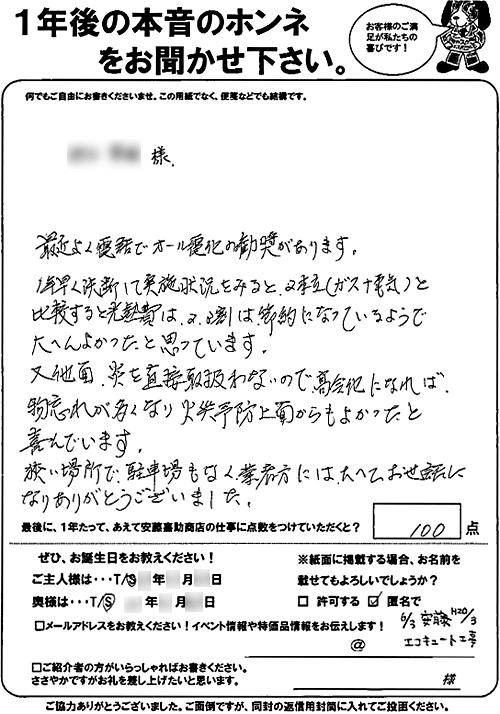 1年後の本音のホンネ
をお聞かせ下さい。
お客様のご満
足が私たちの
喜びです！
何でもご自由にお書きくださいませ。この用紙でなく、便箋などでも結構です。
様.
最近よく電話でオール電化の勧奨があります。
1年早く決断して実施状況をみると、2本立(ガス+電気)と
比較すると光熱費は、2.0割は節約になっているようで
大へんよかったと思っています。
又他面、炎を直接取扱わないので、高令化になれば、
物忘れが多くなり火災予防上面からもよかったと
喜んでいます。
狭い場所で、駐車場もなく、業者方には大へんお世話に
なりありがとうございました。
最後に、1年たって、あえて安藤喜助商店の仕事に点数をつけていただくと？
100 点
ぜひ、お誕生日をお教えください！
ご主人様は・・・T/S 年 月 日
奥様は・・・T/S 年 月 日
※紙面に掲載する場合、お名前を
載せてもよろしいでしょうか？
□ 許可する ☑ 匿名で
□メールアドレスをお教えください！イベント情報や特価品情報をお伝えします！
@
6/3 安藤 H20/3
エコキュート工事
□ご紹介者の方がいらっしゃればお書きください。
ささやかですがお礼を差し上げたいと思います。
様
ご協力ありがとうございました。ご面倒ですが、同封の返信用封筒に入れてご投函ください。